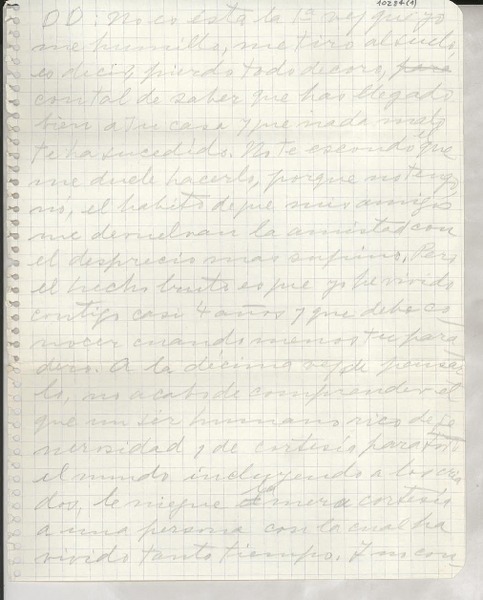 10284(1)
DD: No es esta la 1ª vez que yo
me humillo, me tiro al suelo,
es decir, pierdo todo decoro, para
con tal de saber que has llegado
bien a tu casa y que nada malo
te ha sucedido. No te escondo el que
me duele hacerlo, porque no tengo
no, el hábito de que mis amigos
me devuelvan la amistad con
el desprecio mas supino. Pero
el hecho bruto es que yo he vivido
contigo casi 4 años y que debo co-
nocer cuando menos tu para
dero. A la décima vez de pensar
lo, no acabo de comprender el
que un ser humano rico de ge
nerosidad y de cortesía para todo
el mundo incluyendo a los cria
dos, le niegue la mera cortesía
a una persona con la cual ha
vivido tanto tiempo. Y un con